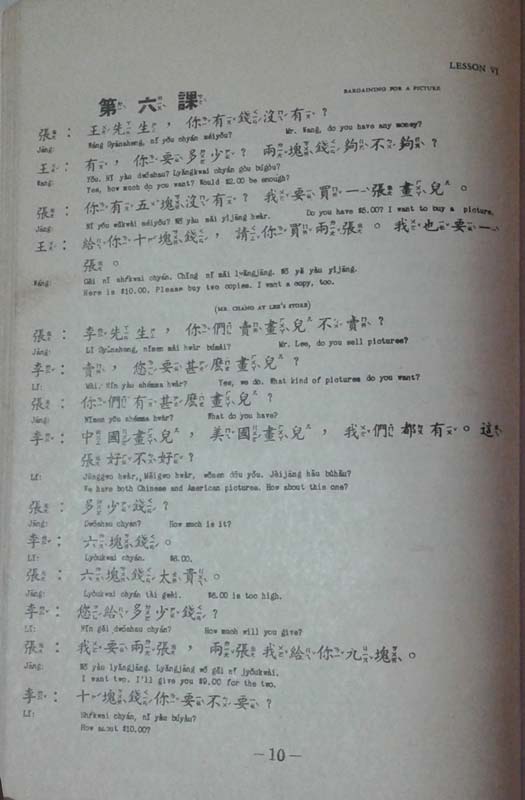 LESSON VI
BARGAINING FOR A PICTURE
第六課
張： 王先生，你有錢沒有？
Jāng: Wáng Syānsheng, nǐ yǒu chyán méiyǒu? Mr. Wang, do you have any money?
王： 有，你要多少？兩塊錢夠不夠？
Wang: Yǒu. Nǐ yàu dwōshau? Lyǎngkwai chyán gòu búgòu?
Yes, how much do you want? Would $2.00 be enough?
張： 你有五塊沒有？我要買一張畫兒。
Jāng: Nǐ yǒu wǔkwài méiyǒu? Wǒ yàu mǎi yìjāng hwàr. Do you have $5.00? I want to buy a picture.
王： 給你十塊錢，請你買兩張。我也要一
張。
Wáng: Gěi nǐ shŕkwai chyán. Chǐng nǐ mǎi lyǎngjāng. Wǒ yě yàu yìjāng.
Here is $10.00. Please buy two copies. I want a copy, too.
(MR. CHANG AT LEE'S STORE)
張： 李先生，你們賣畫兒不賣？
Jāng: Lǐ Syānsheng, nǐmen mài hwàr búmài? Mr. Lee, do you sell pictures?
李： 賣，您要甚麼畫兒？
Lǐ: Mài. Nín yàu shémma hwàr? Yes, we do. What kind of pictures do you want?
張： 你們有甚麼畫兒？
Jāng: Nǐmen yǒu shémma hwàr? What do you have?
李： 中國畫兒，美國畫兒，我們都有。這
張好不好？
Lǐ: Jūnggwo hwàr, Měigwo hwàr, wǒmen dōu yǒu. Jèijāng hǎu bùhǎu?
We have both Chinese and American pictures. How about this one?
張： 多少錢？
Jāng: Dwōshau chyán? How much is it?
李： 六塊錢。
Lǐ: Lyòukwai chyán. $6.00.
張： 六塊錢太貴。
Jāng: Lyòukwai chyán tài gwèi. $6.00 is too high.
李： 您給多少錢？
Lǐ: Nín gěi dwōshau chyán? How much will you give?
張： 我要兩張，兩張我給你九塊。
Jāng: Wǒ yàu lyǎngjāng. Lyǎngjāng wǒ gěi nǐ jyǒukwài.
I want two. I'll give you $9.00 for the two.
李： 十塊錢你要不要？
Lǐ: Shŕkwai chyán, nǐ yàu búyàu?
How about $10.00?
—10—